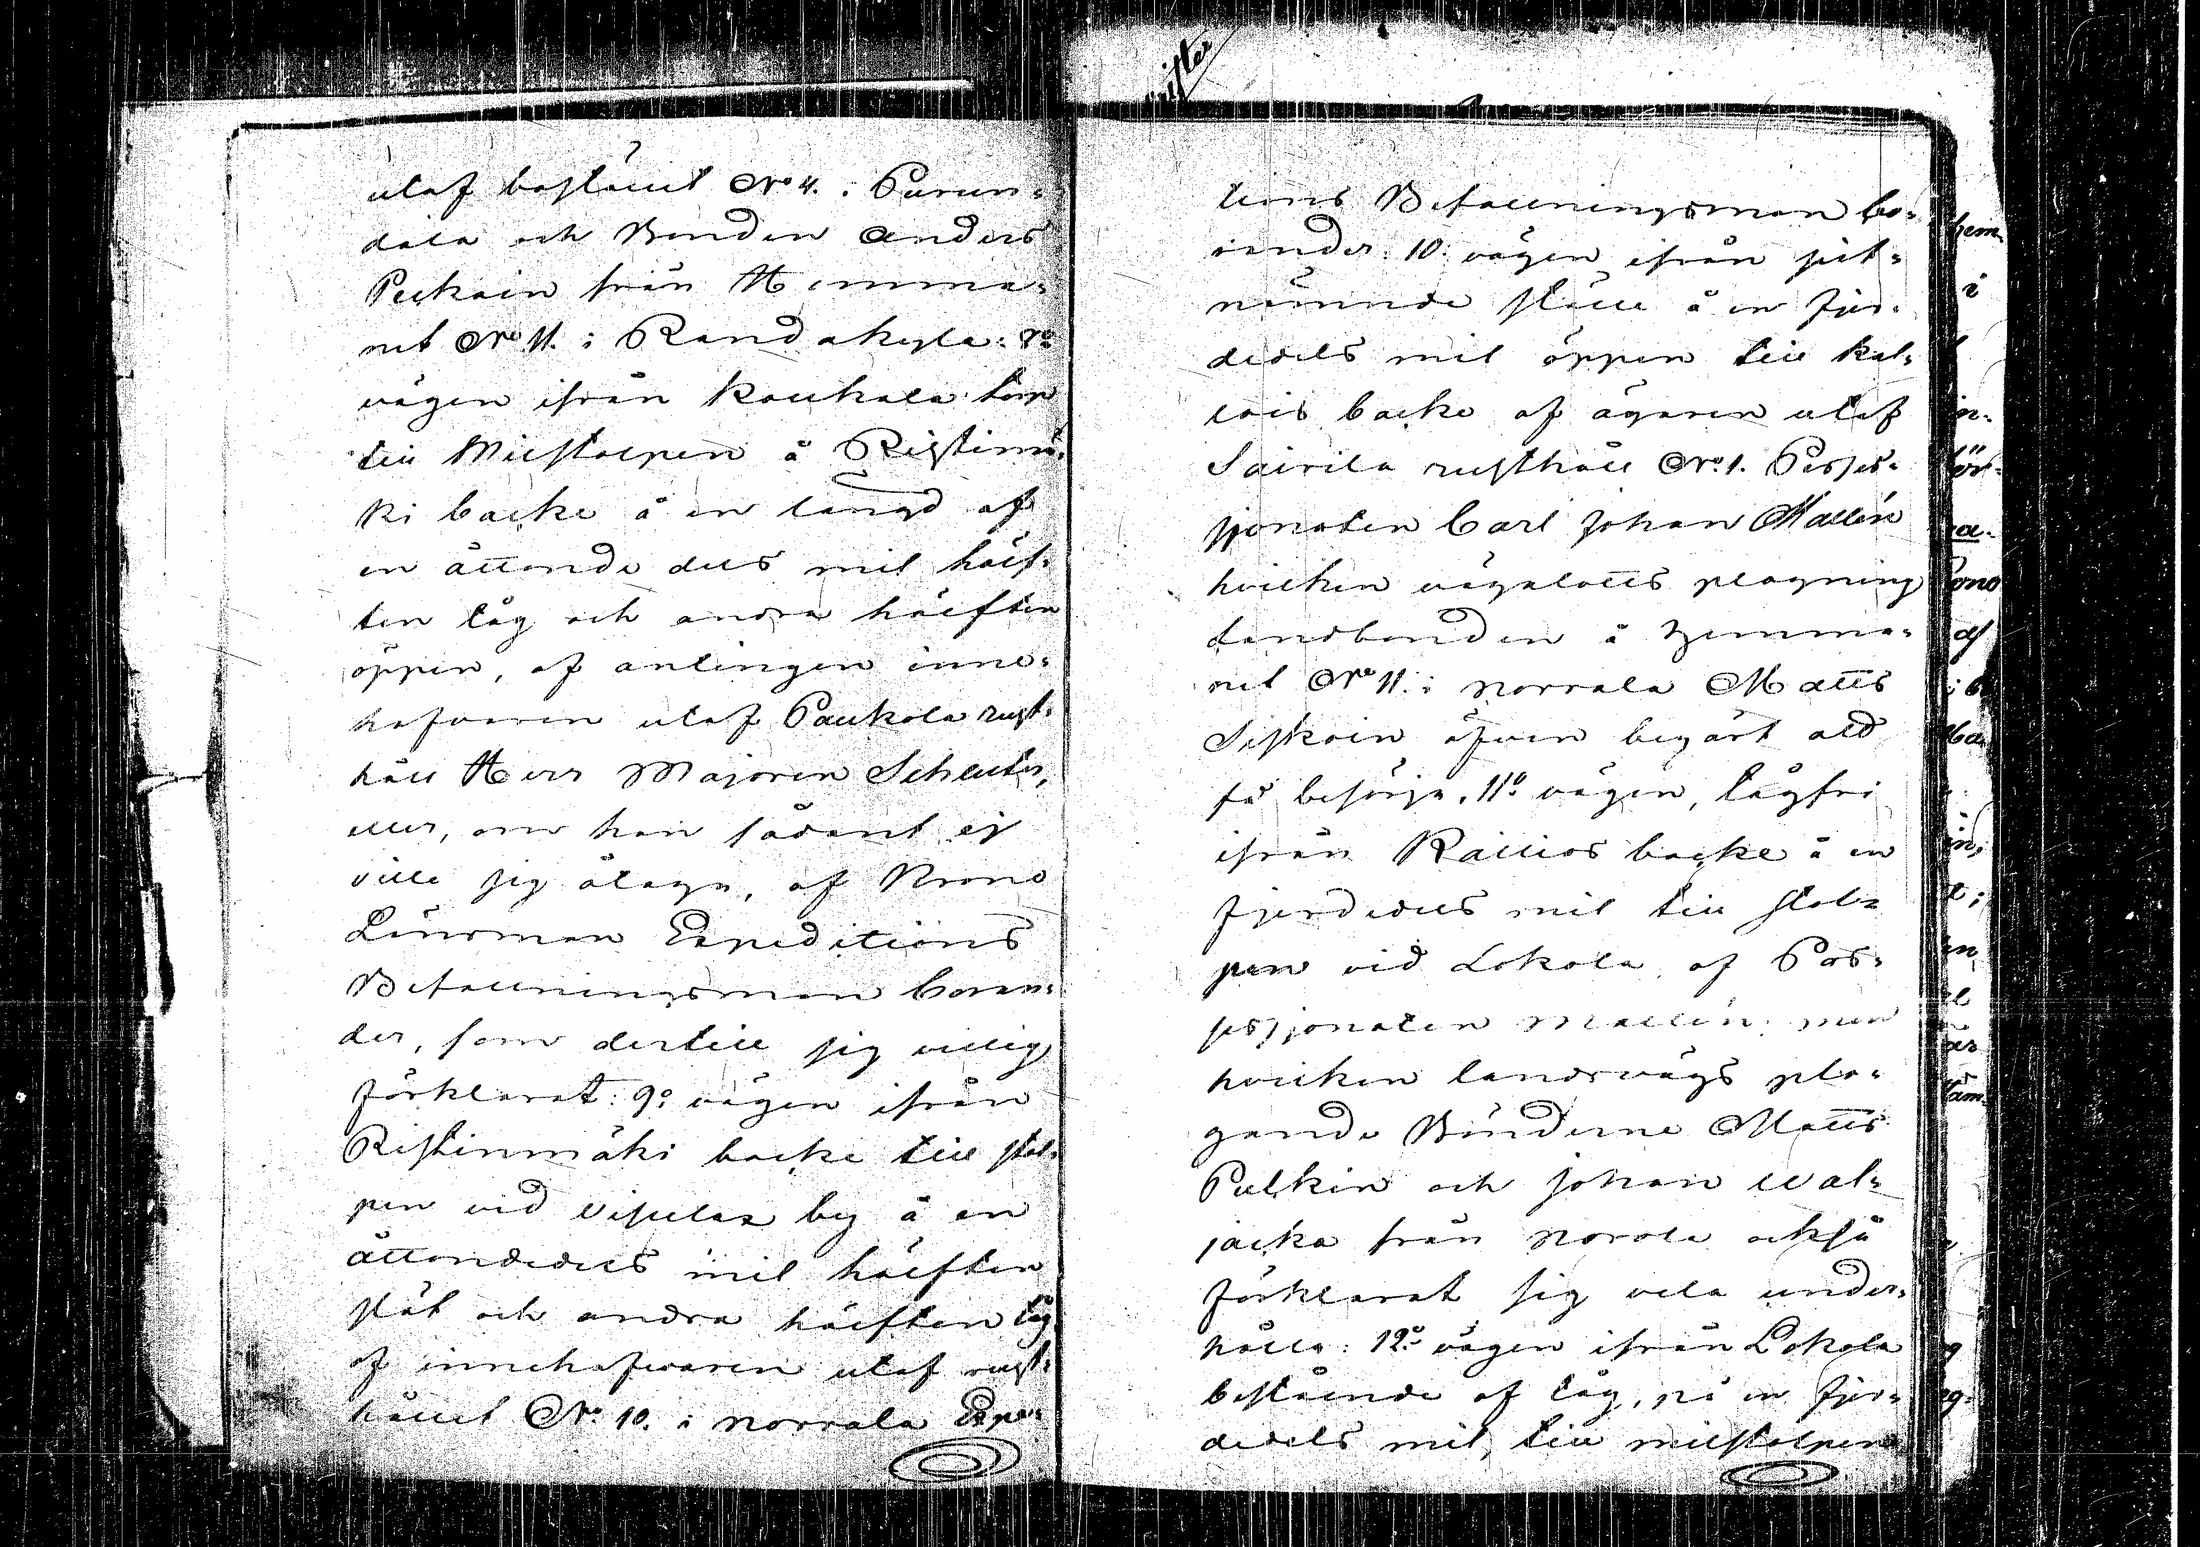 utaf bostället No 4. i Purun=
dala och Bonden Anders
Peckoin från Hemma=
net No 11. i Randakyla: 8o
vägen ifrån Koukala torp
till Milstolpen å Ristimä=
ki backe å en längd af
en åttonde dels mil hälf=
ten låg och andra hälften
öppen, af antingen inne=
hafvaren utaf Paukola rust=
håll Herr Majoren Schulter,
eller, om han sådant ej
ville sig åtaga, af Krono
Länsman Expeditions
Befallningsman Coran=
der, som dertill sig villig
förklarat: 9o vägen ifrån
Ristinmäki backe till stol=
pen vid Visulax by å en
åttondedels mil hälften
slät och andra hälften låg
af innehafvaren utaf rust=
hållet No 10. i Norrala Expe=
tions Befallningsman Co=
rander: 10: vägen ifrån sist=
nämnde ställe å en fjer=
dedels mil öppen till Kal=
lois backe af ägaren utaf
Sairila rusthåll No 1. Posses=
sjonaten Carl Johan Mallén
hvilken vägalotts plogning
Landbonden å Hemma=
net No 11. i Norrala Matts
Siskoin äfven begärt att
få besörja. 11o vägen, lågfri
ifrån Kallios backe å en
fjerdedels mil till stol=
pen vid Lokola af Pos=
sessjonaten Mallén: men
hvilken landsvägs plo=
gande Bönderne Matts
Pulkin och Johan Wal=
jacka från Norola också
förklarat sig vela under=
hålla: 12o vägen ifrån Lokola
bestående af låg, på en fjer=
dedels mil, till milstolpen